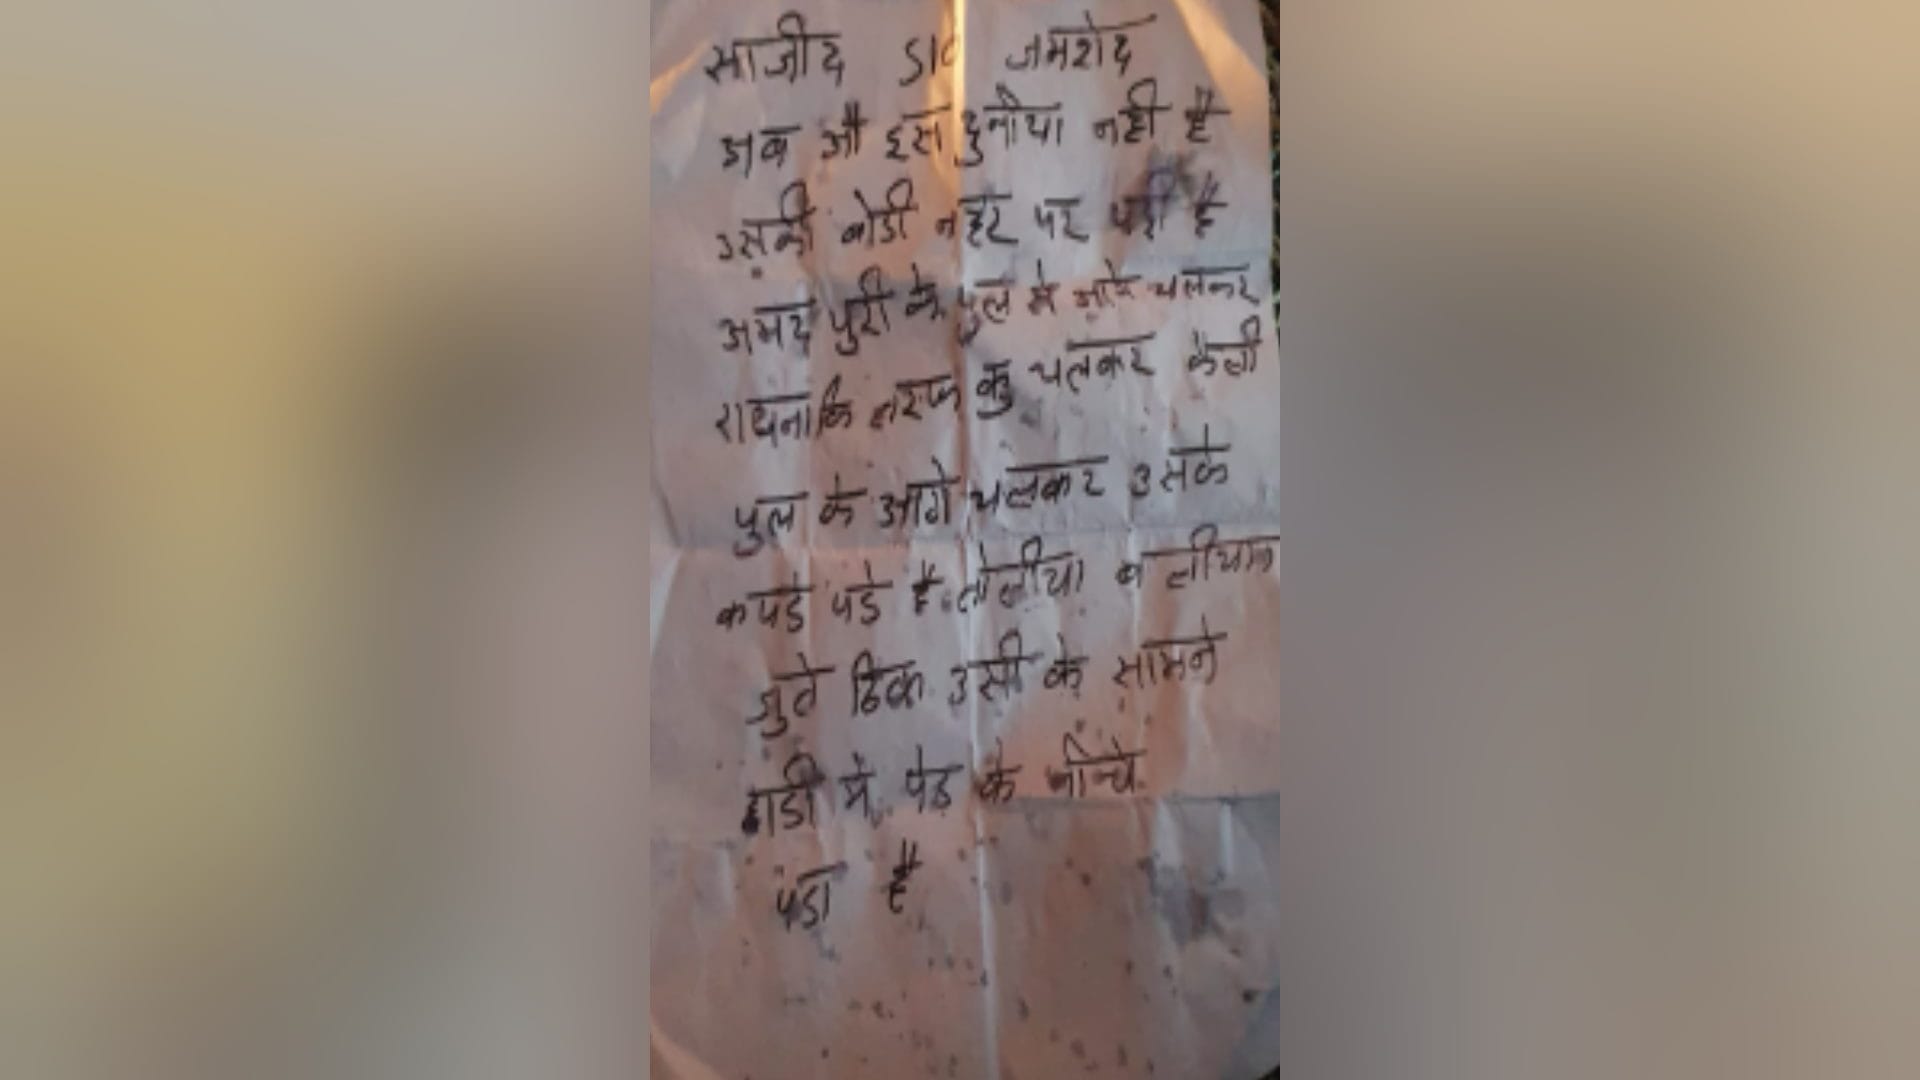 साजीद S/O जमशेद
अब औ इस दुनीया नही है
उसकी बोडी नहर पर पडी है
अमद पुरी के पुल से आगे चलकर
राधना कि तरफ कु चलकर कैली
पुल के आगे चलकर उसके
कपडे पडे है तोलीया ब नीयान
जुते ठिक उसी के सामने
झाडी मे पेड के नीचे
पडा है